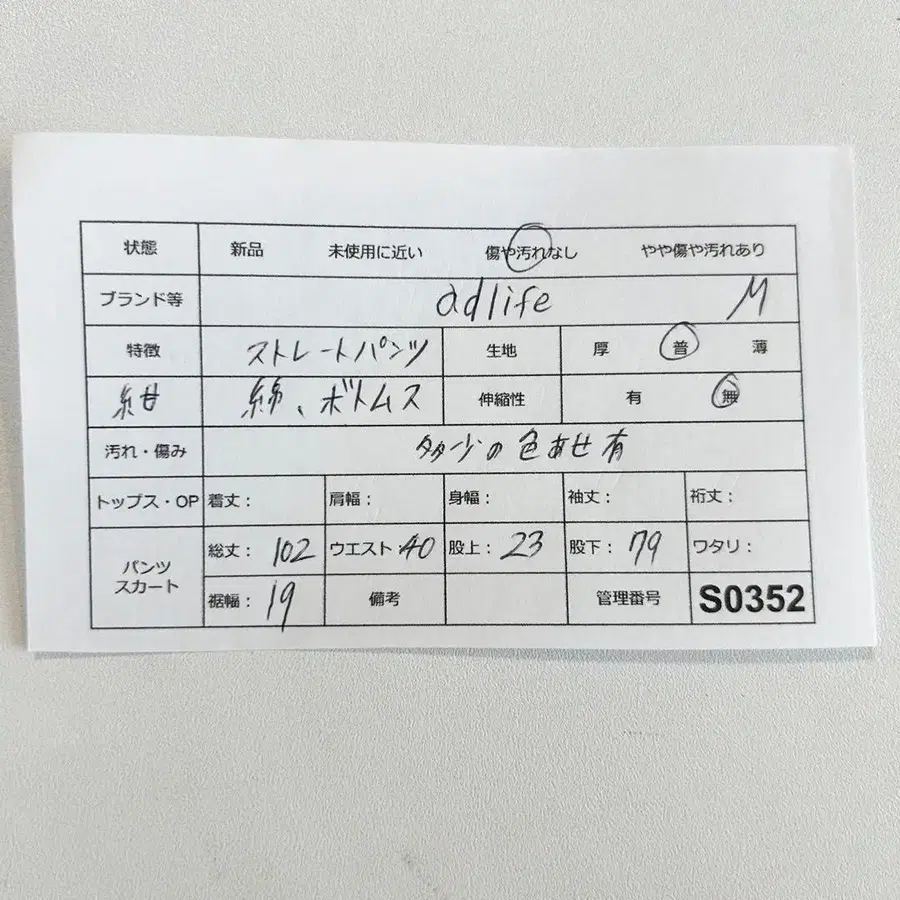 状態 新品 未使用に近い 傷や汚れなし やや傷や汚れあり
ブランド等 adlife M
特徴 ストレートパンツ 生地 厚 普 薄
紺 綿、ボトムス 伸縮性 有 無
汚れ・傷み 多少の色あせ有
トップス・OP 着丈: 肩幅: 身幅: 袖丈: 裄丈:
パンツ スカート 総丈: 102 ウエスト 40 股上: 23 股下: 79 ワタリ:
裾幅: 19 備考 管理番号 S0352